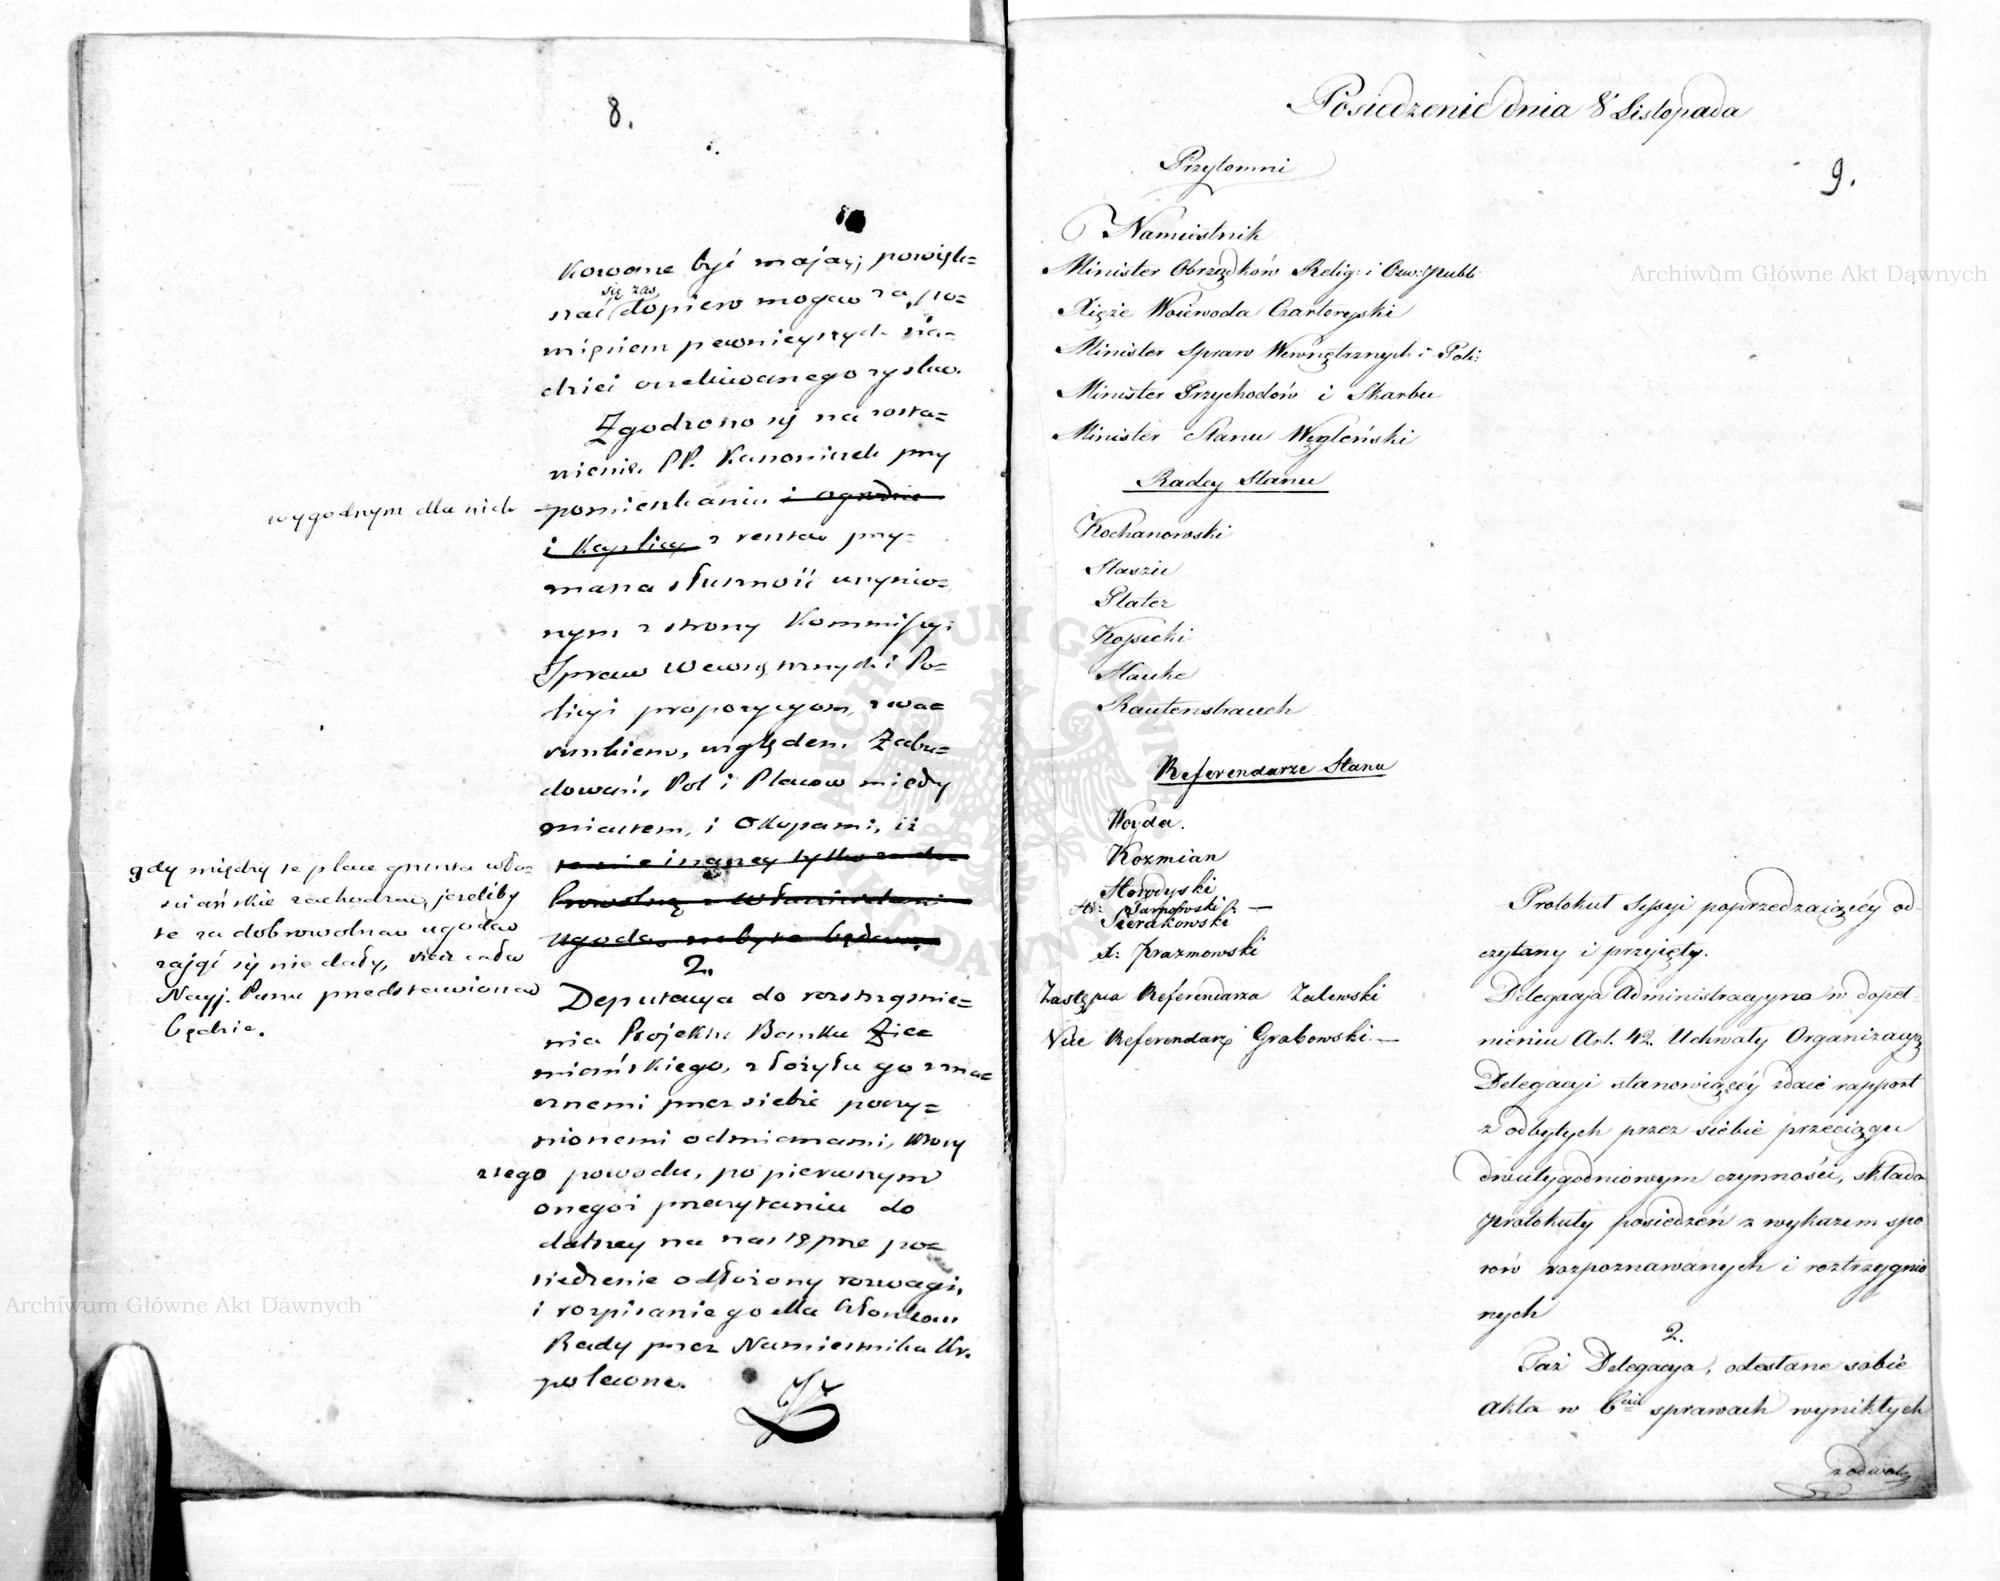 8.
kowane być mają; powięk=
się zas
szać dopiero mogąc za po=
mnieniem pewnieyszych na=
dziei oczekiwanego zysku.
Zgodzono się na zosta=
wienie PP. Kanoniczek przy
wygodnym dla nich
pomieszkaniu i ogrodzie
i Kaplicy z resztą przy=
znana słuszność uczynio=
nym z strony Kommissyi
Spraw Wewnętrznych i Po=
licyi propozycyom, z wa=
runkiem, względem Zabu=
dowań, Pol i Placow między
miastem, i Okopami, iż
te nie inaczey tylko za do=
browolną z właścicielami
ugodą nabyte będą
gdy między te place grunta wło=
sciańskie zachodzą, jeżeliby
te za dobrowolną ugodą
zająć się nie dały, rzecz cała
Nayj. Panu przedstawioną
będzie.
2.
Deputacya do rozstrząśnie=
nia Projektu Banku Zie=
miańskiego, złożyła go z zna=
cznemi przez siebie poczy=
nionemi odmianami, który
z tego powodu, po pierwszym
onegoż przeczytaniu do
dalszey na następne po=
siedzenie odłożony rozwagi,
i rozpisanie go dla Członków
Rady przez Namiestnika Kr.
polecone.
Posiedzenie dnia 8 Listopada
9.
Przytomni
Namiestnik
Minister Obrządków Relig: i Ośw: Publ:
Xiąże Woiewoda Czartoryski
Minister Spraw Wewnętrznych i Poli:
Minister Przychodów i Skarbu
Minister Stanu Węgleński
Radcy Stanu
Kochanowski
Staszic
Plater
Kossecki
Hauke
Rautenstrauch
Referendarze Stanu
Woyda.
Kozmian
Horodyski
Hr: Tarnowski
Sierakowski
X: Prazmowski
Zastępca Referendarza Zalewski
Vice Referendarz Grabowski.—
Protokuł Sessyi poprzedzaiącéy od-
czytany i przyięty.
Delegacja Administracyjna w dopeł-
nieniu Art. 42. Uchwały Organizacyą
Delegacyi stanowiącéy zdaie rapport
z odbytych przez siebie przeciągu
dwutygodniowym czynności, składa
protokuły posiedzeń z wykazem spo
rów rozpoznawanych i roztrzygnio
nych
2.
Taż Delegacya, odesłane sobie
Akta w 6ciu sprawach wynikłych
z odwoła
Archiwum Główne Akt Dawnych
Archiwum Główne Akt Dawnych
ARCHIWUM GŁÓWNE AKT DAWNYCH